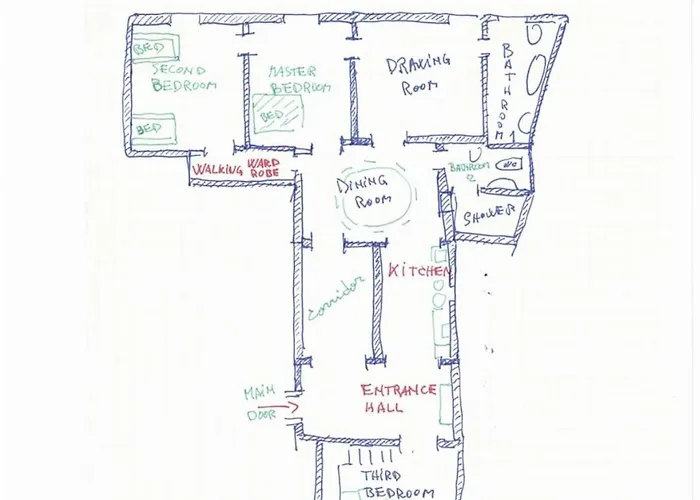 BED
SECOND
BEDROOM
BED
MASTER
BEDROOM
BED
DRAWING
ROOM
BATHROOM 1
WALKING WARD
ROBE
DINING
ROOM
BATHROOM
2
SHOWER
KITCHEN
corridor
MAIN
DOOR
ENTRANCE
HALL
THIRD
BEDROOM